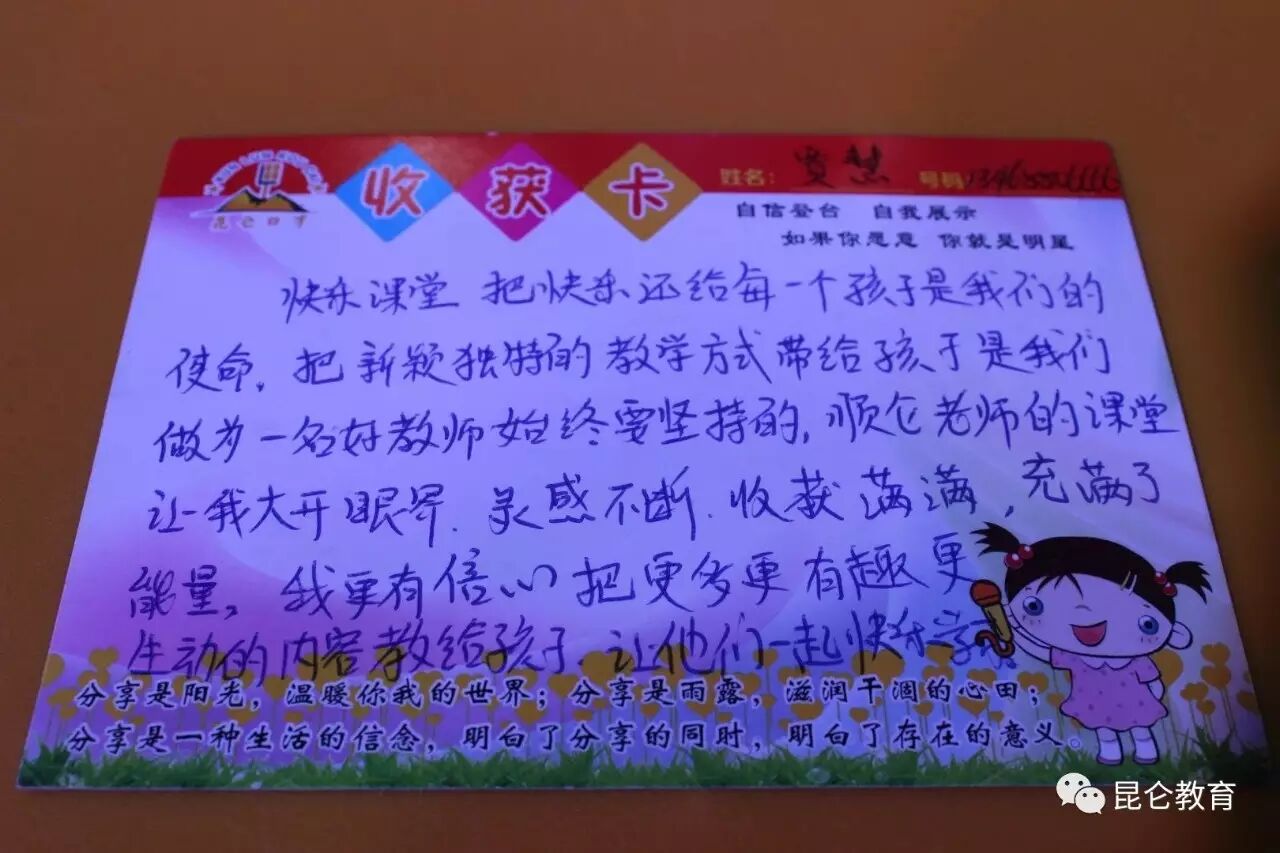 收获卡
姓名：贾慧 号码
昆仑教育
自信登台 自我展示
如果你愿意 你就是明星
快乐课堂 把快乐还给每一个孩子是我们的
使命，把新颖独特的教学方式带给孩子是我们
做为一名好教师始终要坚持的，顺仑老师的课堂
让我大开眼界、灵感不断、收获满满，充满了
能量，我更有信心把更多更有趣更
生动的内容教给孩子，让他们一起快乐学
分享是阳光，温暖你我的世界；分享是雨露，滋润干涸的心田；
分享是一种生活的信念，明白了分享的同时，明白了存在的意义。
昆仑教育